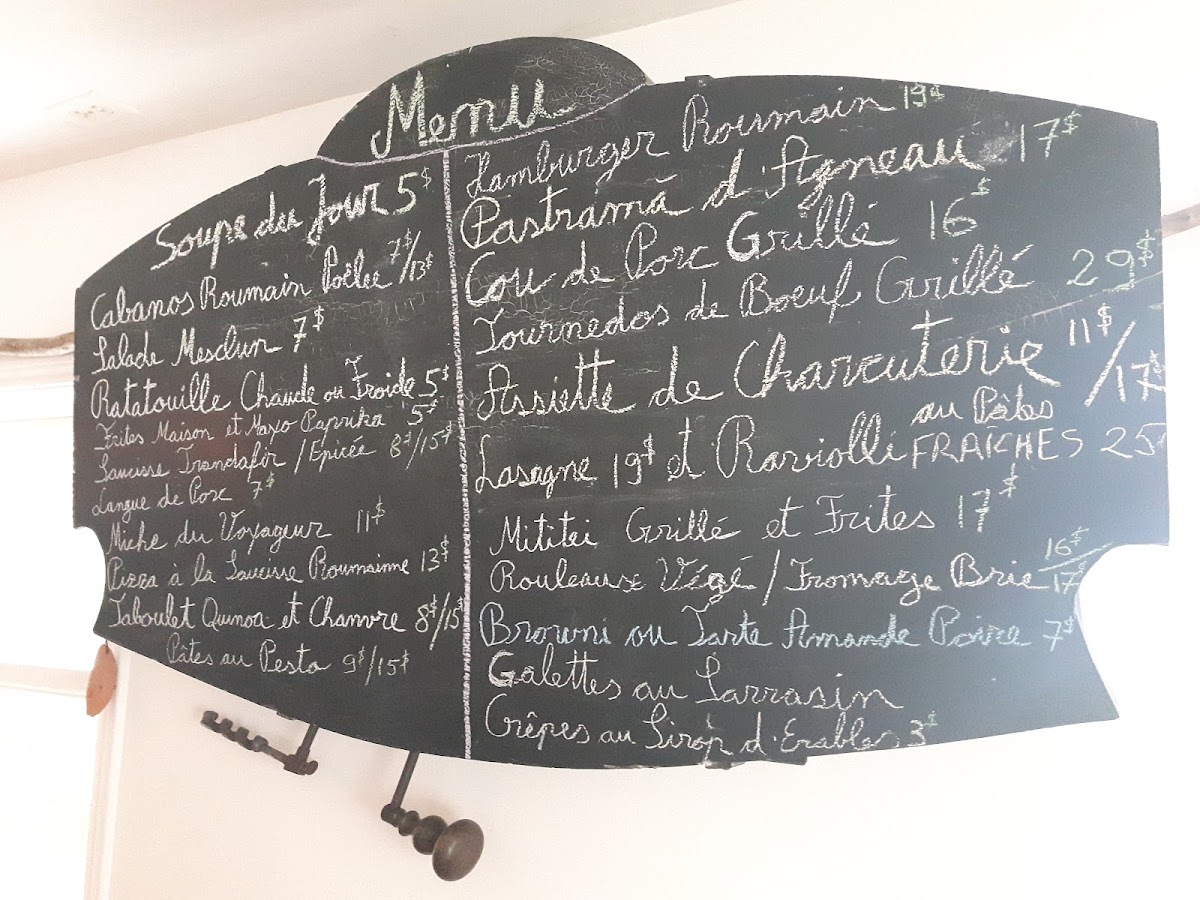 Menu
Soupe du Jour 5$
Cabanos Roumain Poêlee 7$/13$
Salade Mesclun 7$
Ratatouille Chaude ou Froide 5$
Frites Maison et Mayo Paprika 5$
Saucisse Trandafir / Epicée 8$/15$
Langue de Porc 7$
Miche du Voyageur 11$
Pizza à la Saucisse Roumaine 13$
Taboulet Quinoa et Chanvre 8$/15$
Pâtes au Pesto 9$/15$
Hamburger Roumain 19$
Pastramã d'Agneau 17$
Cou de Porc Grillé 16$
Tournedos de Boeuf Grillé 29$
Assiette de Charcuterie 11$/17$
Lasagne 19$ et Raviolli au Pâtes FRAÎCHES 25
Mititei Grillé et Frites 17$
Rouleaux Végé / Fromage Brie 16$/17$
Browni ou Tarte Amande Poire 7$
Galettes au Sarrasin
Crêpes au Sirop d'Erables 3$